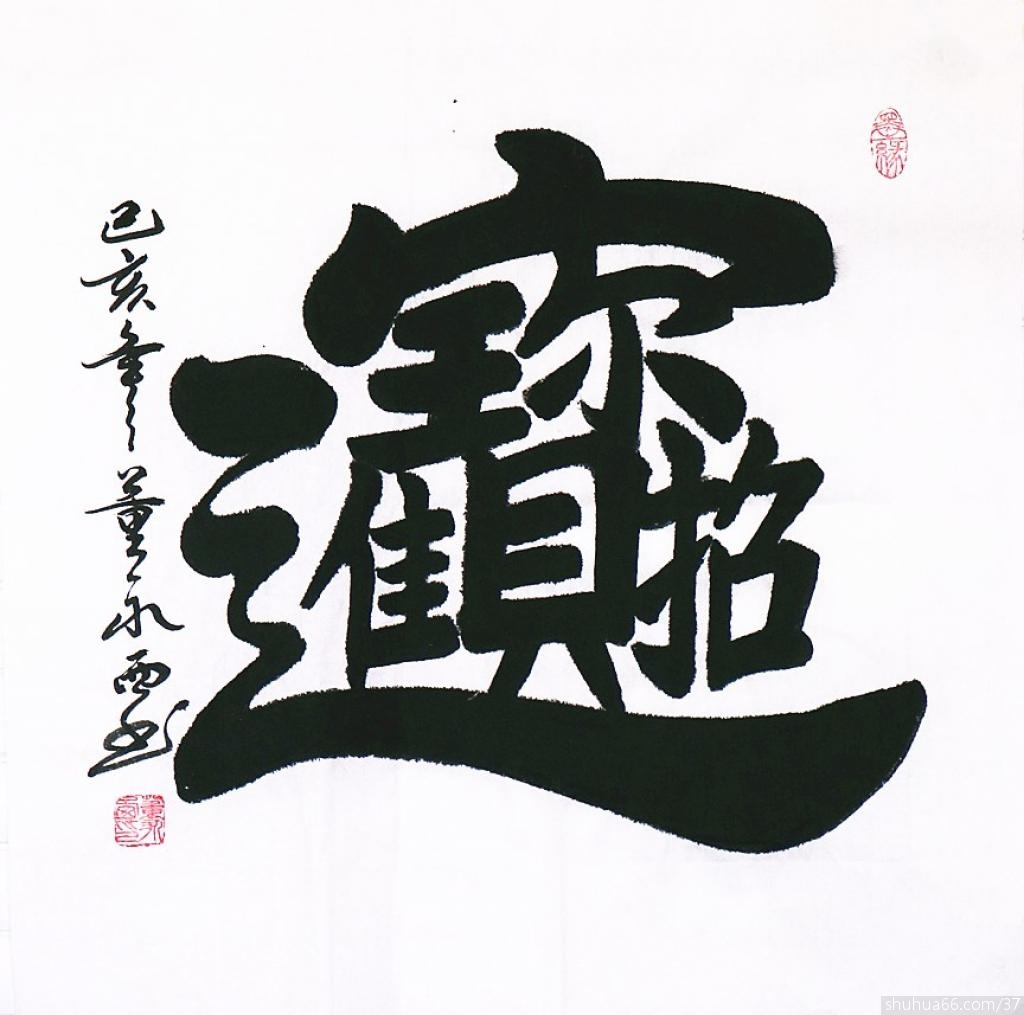 招財進寶
己亥年
董永西书
shuhua66.com/37